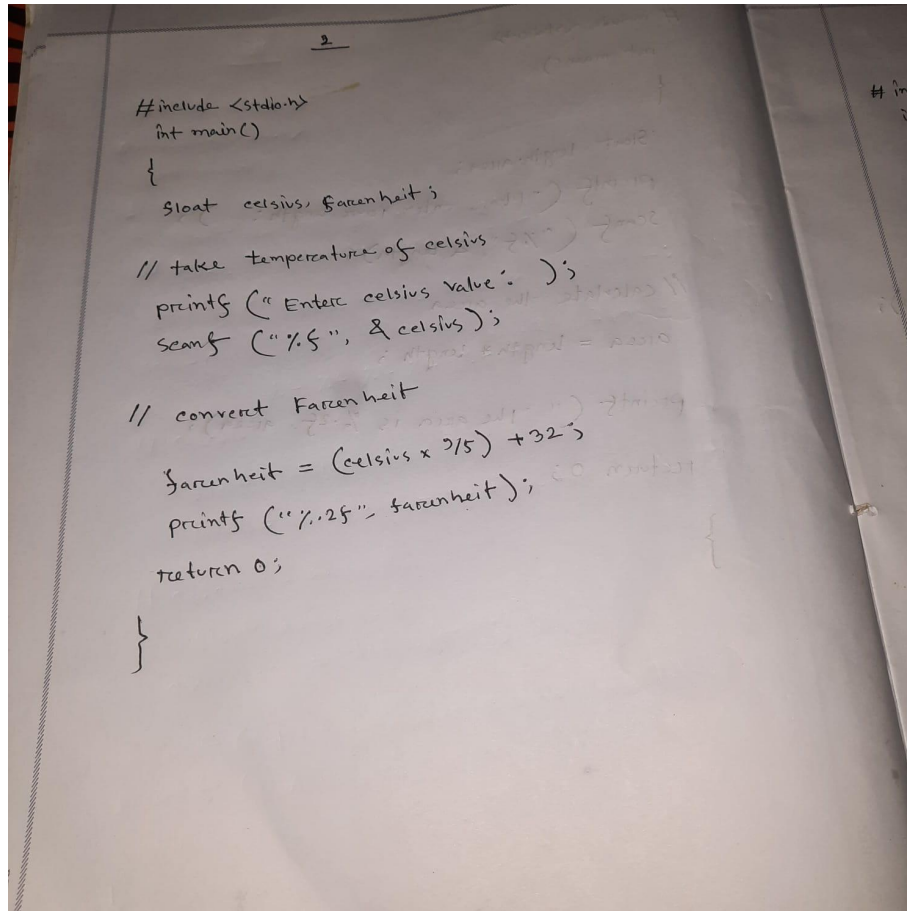 2
#include <stdio.h>
int main()
{
float celsius, farenheit;
// take temperature of celsius
printf (" Enter celsius value: ");
scanf ("%f", & celsius);
// convert Farenheit
farenheit = (celsius x 9/5) +32;
printf ("%.2f", farenheit);
return 0;
}
# in